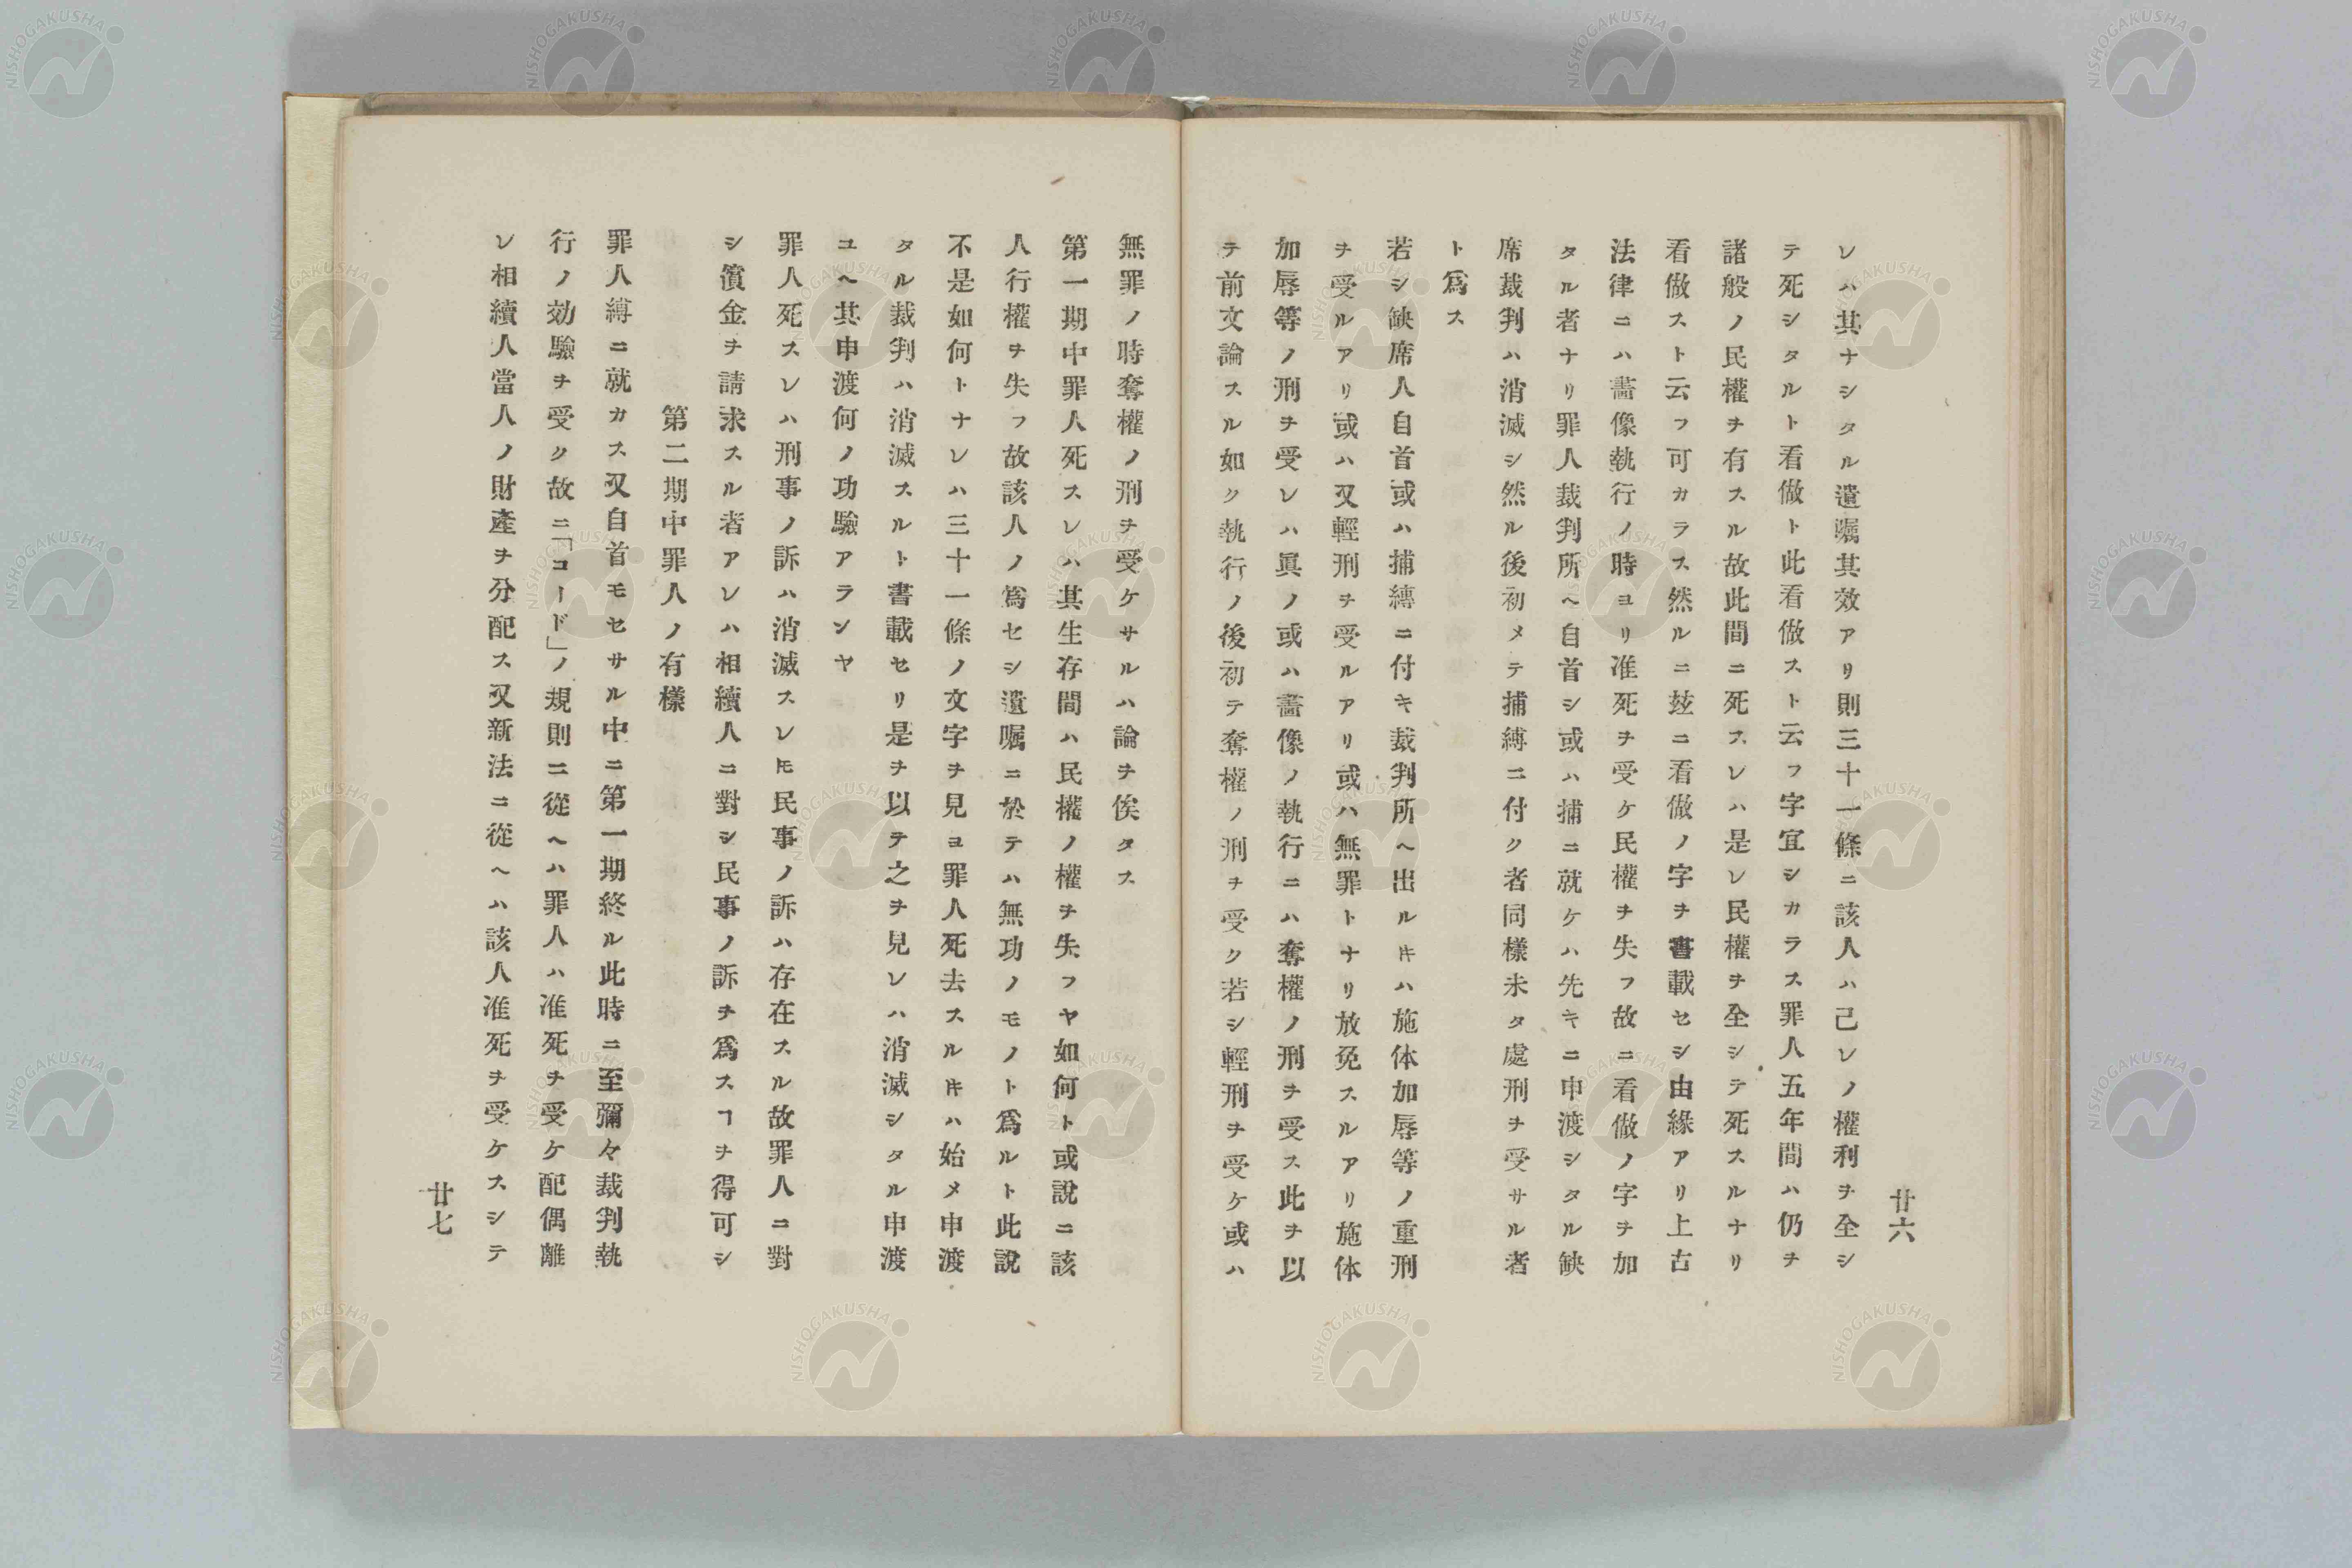 廿六
レハ其ナシタル遺囑其效アリ則三十一條ニ該人ハ己レノ權利ヲ全シ
テ死シタルト看做ト此看做スト云フ字宜シカラス罪人五年間ハ仍ヲ
諸般ノ民權ヲ有スル故此間ニ死スレハ是レ民權ヲ全シテ死スルナリ
看做スト云フ可カラス然ルニ玆ニ看做ノ字ヲ書載セシ由緣アリ上古
法律ニハ畵像執行ノ時ヨリ准死ヲ受ケ民權ヲ失フ故ニ看做ノ字ヲ加
タル者ナリ罪人裁判所ヘ自首シ或ハ捕ニ就ケハ先キニ申渡シタル缺
席裁判ハ消滅シ然ル後初メテ捕縛ニ付ク者同樣未タ處刑ヲ受サル者
ト爲ス
若シ缺席人自首或ハ捕縛ニ付キ裁判所ヘ出ルㇳキハ施体加辱等ノ重刑
ヲ受ルアリ或ハ又輕刑ヲ受ルアリ或ハ無罪トナリ放免スルアリ施体
加辱等ノ刑ヲ受レハ眞ノ或ハ畵像ノ執行ニハ奪權ノ刑ヲ受ス此ヲ以
テ前文論スル如ク執行ノ後初テ奪權ノ刑ヲ受ク若シ輕刑ヲ受ケ或ハ
無罪ノ時奪權ノ刑ヲ受ケサルハ論ヲ俟タス
第一期中罪人死スレハ其生存間ハ民權ノ權ヲ失フヤ如何ト或說ニ該
人行權ヲ失フ故該人ノ爲セシ遺囑ニ於テハ無功ノモノト爲ルト此說
不是如何トナレハ三十一條ノ文字ヲ見ヨ罪人死去スルㇳキハ始メ申渡
タル裁判ハ消滅スルト書載セリ是ヲ以テ之ヲ見レハ消滅シタル申渡
ユヘ其申渡何ノ功驗アランヤ
罪人死スレハ刑事ノ訴ハ消滅スレㇳモ民事ノ訴ハ存在スル故罪人ニ對
シ償金ヲ請求スル者アレハ相續人ニ對シ民事ノ訴ヲ爲スヿヲ得可シ
第二期中罪人ノ有樣
罪人縛ニ就カス又自首モセサル中ニ第一期終ル此時ニ至彌々裁判執
行ノ効驗ヲ受ク故ニ「コード」ノ規則ニ從ヘハ罪人ハ准死ヲ受ケ配偶離
レ相續人當人ノ財產ヲ分配ス又新法ニ從ヘハ該人准死ヲ受ケスシテ
廿七
NISHOGAKUSHA